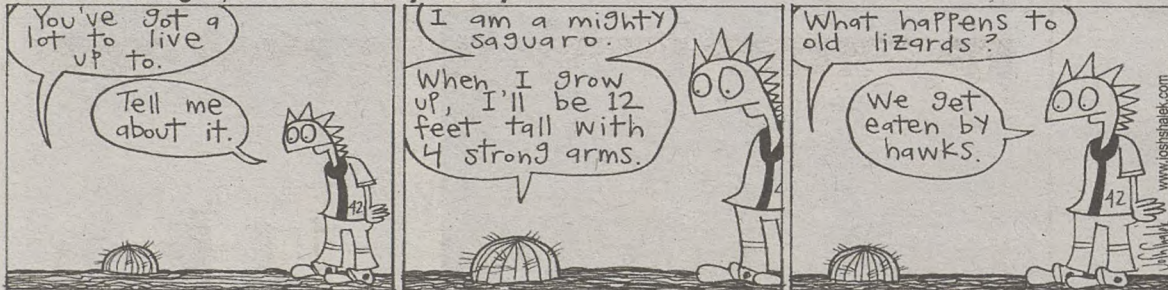 You've got a
lot to live
up to.
Tell me
about it.
42
I am a mighty
saguaro.
When I grow
up, I'll be 12
feet tall with
4 strong arms.
What happens to
old lizards?
We get
eaten by
hawks.
42
www.joshshalek.com